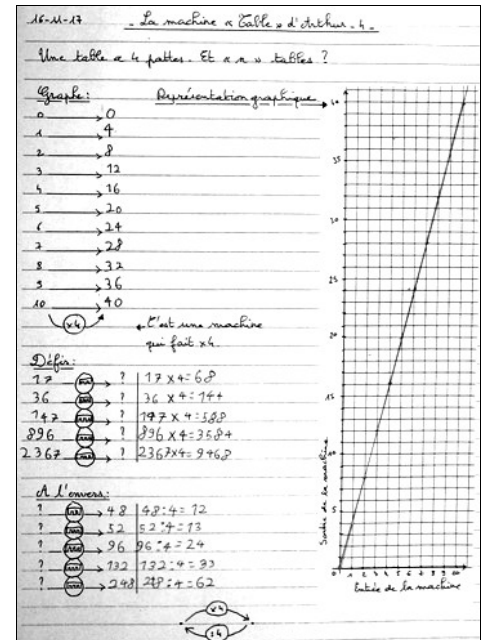 16-11-17 - La machine « Table » d'Arthur - 4 -
Une table a 4 pattes. Et « n » tables ?
Graphe : Représentation graphique
0 → 0
1 → 4
2 → 8
3 → 12
4 → 16
5 → 20
6 → 24
7 → 28
8 → 32
9 → 36
10 → 40
×4
C'est une machine
qui fait ×4.
Défis :
17 → ? 17×4=68
36 → ? 36×4=144
147 → ? 147×4=588
896 → ? 896×4=3584
2367 → ? 2367×4=9468
A l'envers :
? → 48 48:4=12
? → 52 52:4=13
? → 96 96:4=24
? → 132 132:4=33
? → 248 248:4=62
×4
:4
40
35
30
25
20
15
10
5
0 1 2 3 4 5 6 7 8 9 10
Sortie de la machine
Entrée de la machine